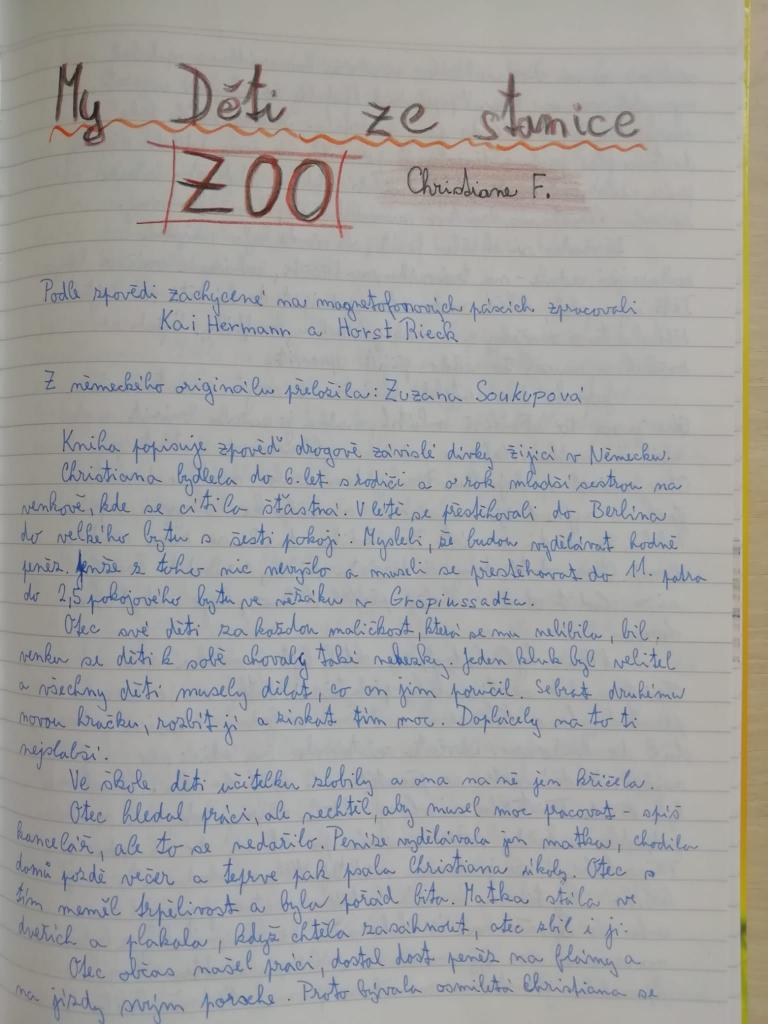 My Děti ze stanice
ZOO Christiane F.
Podle zpovědi zachycené na magnetofonových páscích zpracovali
Kai Hermann a Horst Rieck
Z německého originálu přeložila: Zuzana Soukupová
Kniha popisuje zpověď drogově závislé dívky žijící v Německu.
Christiana bydlela do 6. let s rodiči a o rok mladší sestrou na
venkově, kde se cítila šťastná. V létě se přestěhovali do Berlína
do velkého bytu s šesti pokoji. Mysleli, že budou vydělávat hodně
peněz. Jenže z toho nic nevyšlo a museli se přestěhovat do 11. patra
do 2,5 pokojového bytu ve věžáku v Gropiussadtu.
Otec své děti za každou maličkost, která se mu nelíbila, bil,
venku se děti k sobě chovaly taki nehezky. Jeden kluk byl velitel
a všechny děti musely dělat, co on jim poručil. Sebrat druhému
novou hračku, rozbít ji a získat tím moc. Doplácely na to ti
nejslabší.
Ve škole děti učitelku zlobily a ona na ně jen křičela.
Otec hledal práci, ale nechtěl, aby musel moc pracovat - spíš
kancelář, ale to se nedařilo. Peníze vydělávala jen matka, chodila
domů pozdě večer a teprve pak psala Christiana úkoly. Otec s
tím neměl trpělivost a byla pořád bita. Matka stála ve
dveřích a plakala, když chtěla zasáhnout, otec zbil i ji.
Otec občas našel práci, dostal dost peněz na flámy a
na jízdy svým porsche. Proto bývala osmiletá Christiana se